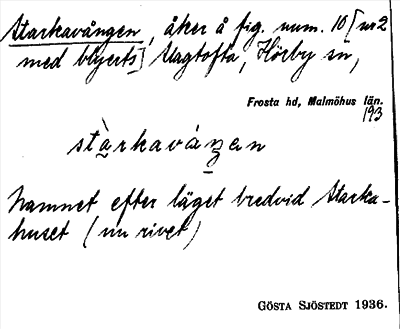 Starkavången, åker å fig. num. 10 [nr 2
med blyerts] Slagtofta, Hörby sn,
Frosta hd, Malmöhus län.
193
stàrkaváŋen
Namnet efter läget bredvid Starka-
huset (nu rivet)
GÖSTA SJÖSTEDT 1936.